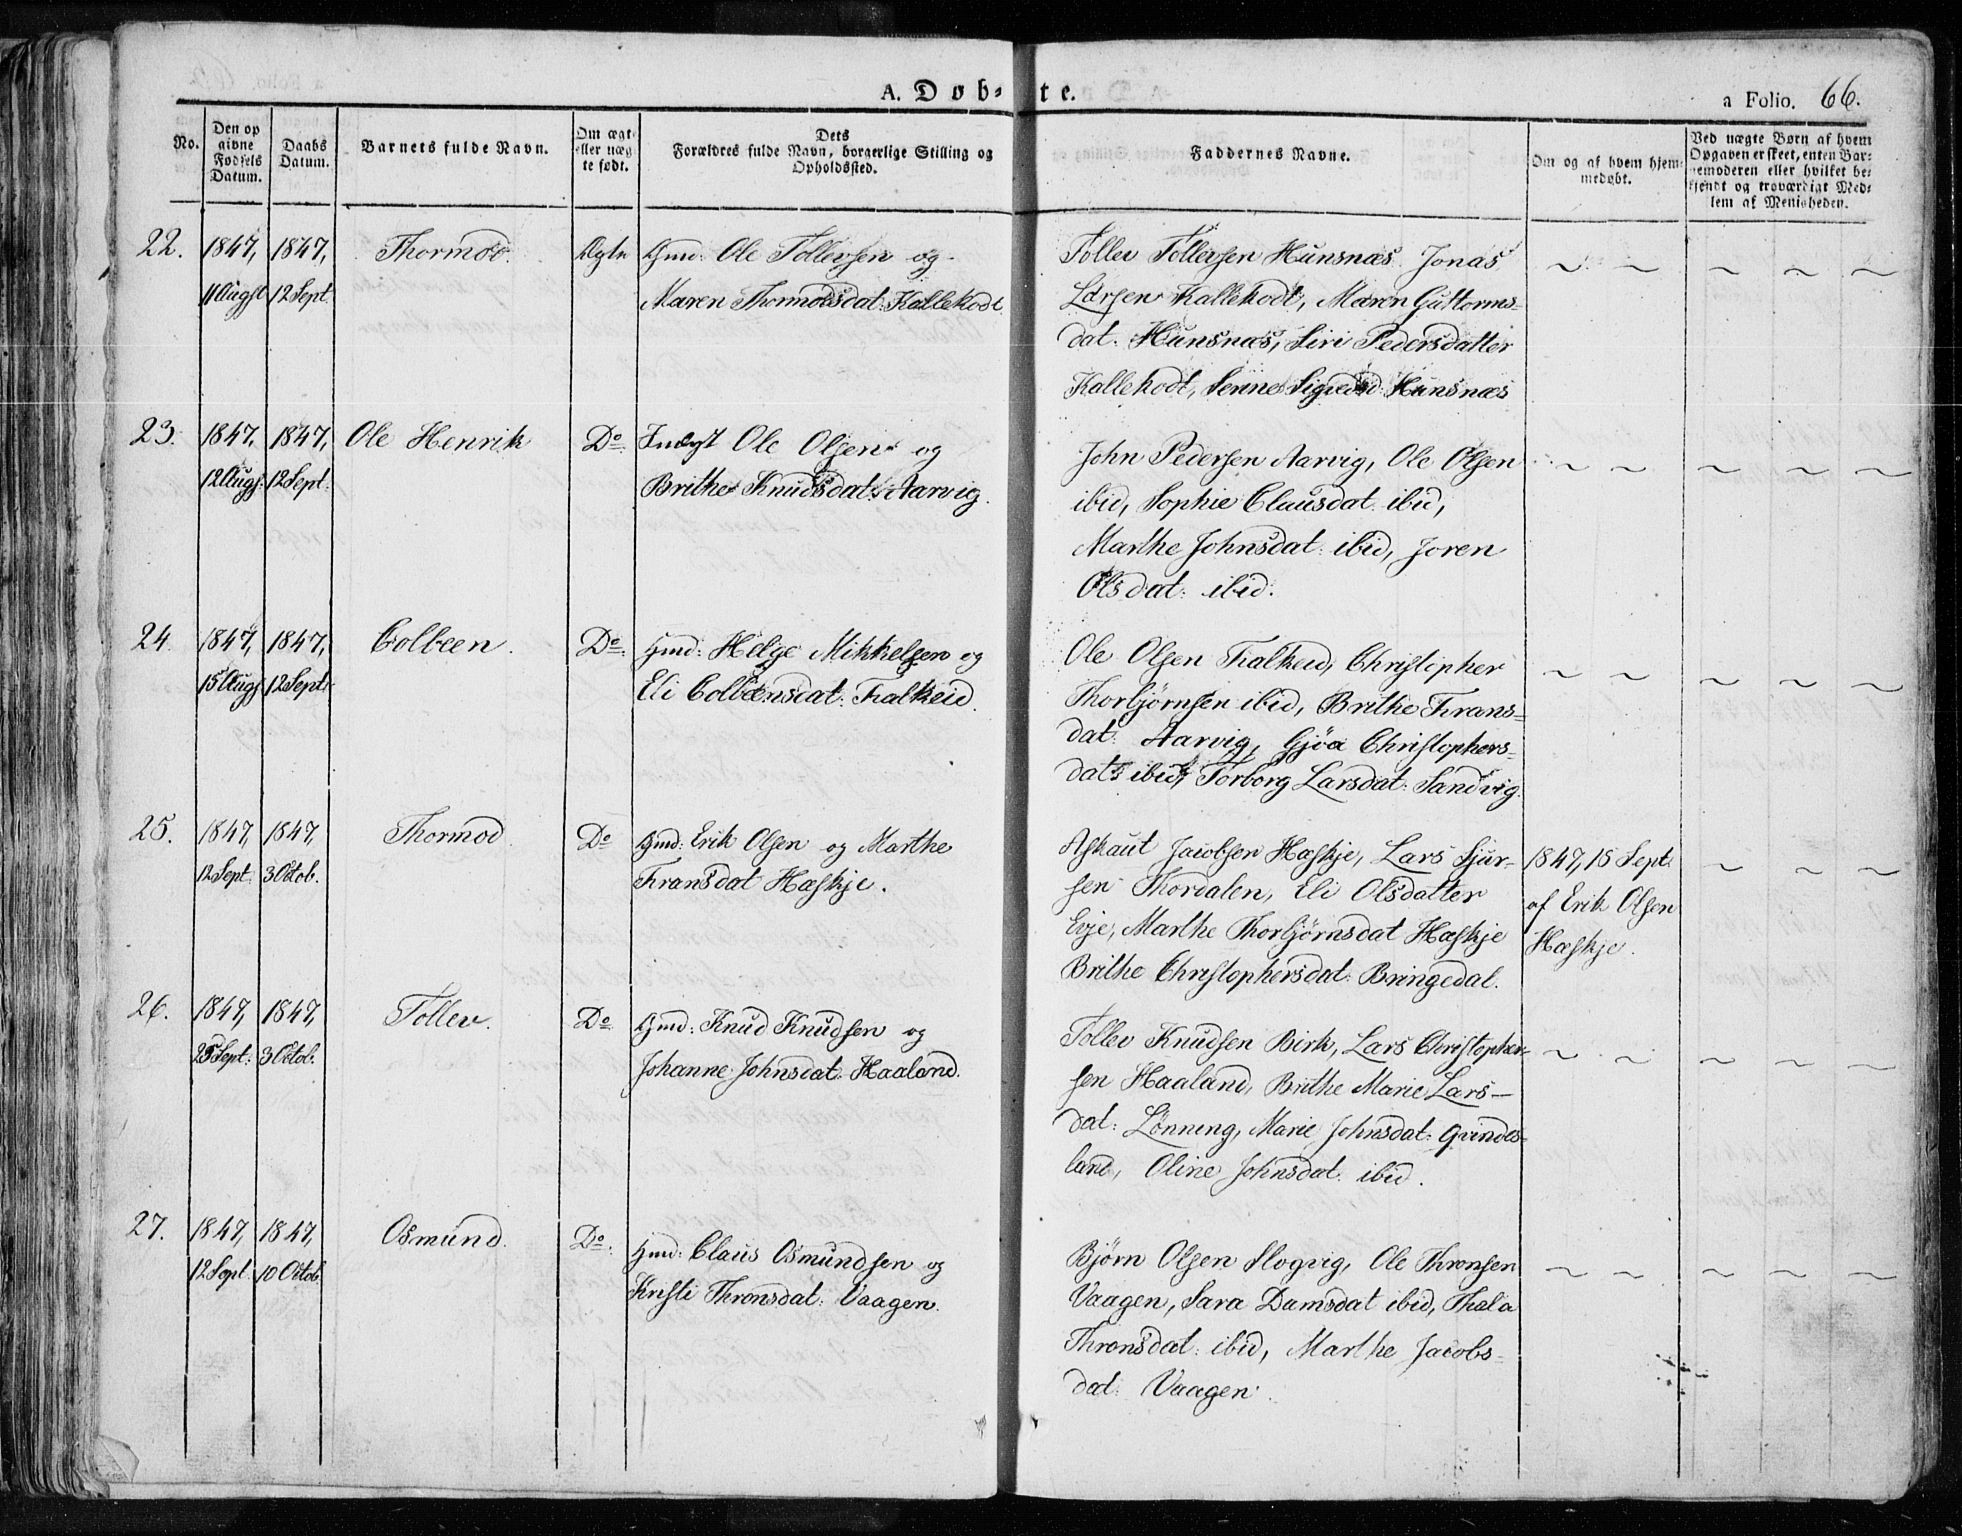 A. Døb-te.
a Folio. 66.
No.
Den op
givne
Fødsels
Datum.
Daabs
Datum.
Barnets fulde Navn.
Om ægt-
eller uæg-
te født.
Dets
Forældres fulde Navn, borgerlige Stilling og
Opholdssted.
Faddernes Navne.
Om og af hvem hjem-
medøbt.
Ved uægte Børn af hvem
Opgaven er skeet, enten Bar-
nemoderen eller hvilket be-
kjendt og troværdigt Med-
lem af Menigheden.
22.
1847,
11 Augst
1847,
12 Sept
Thormod.
Ægte
Gmd: Ole Tollevsen og
Maren Thormodsdat: Kallekodt
Tollev Tollevsen Hunsnæs Jonas
Larsen Kallekodt, Maren Guttorms-
dat: Hunsnæs, Siri Pedersdatter
Kallekodt, Serine Hunsnæs
~ ~ ~ ~ ~
23.
1847,
12 Augs
1847,
12 Sept.
Ole Henrik
Do
Indgst Ole Olsen og
Brithe Knudsdat: Aarvig.
John Pedersen Aarvig, Ole Olsen
ibid, Sophie Clausdat: ibid,
Marthe Johnsdat: ibid, Joren
Olsdat: ibid.
~ ~ ~ ~ ~
24.
1847,
15 Augs
1847,
12 Sept:
Colbeen.
Do:
Gmd: Helge Mikkelsen og
Eli Colbensdat: Falkeid.
Ole Olsen Falkeid, Christopher
Thorbjørnsen ibid, Brithe Frans-
dat: Aarvig, Gjøa Christophers-
dat: ibid, Torborg Larsdat: Sandvig.
~ ~ ~ ~ ~
25.
1847,
12 Sept
1847,
3 Octob.
Thormod
Do
Gmd: Erik Olsen og Marthe
Fransdat Hæskje.
Askaut Jacobsen Hæskje, Lars Sjur-
sen Thordalen, Eli Olsdatter
Evje, Marthe Thorbjørnsdat Hæskje
Brithe Christophersdat: Bringedal.
1847, 15 Sept:
af Erik Olsen
Hæskje.
~ ~ ~
26.
1847,
25 Sept:
1847,
3 Octob.
Tollev.
Do
Gmd: Knud Knudsen og
Johanne Johnsdat: Haaland.
Tollev Knudsen Birk, Lars Christopher-
sen Haaland, Brithe Marie Lars-
dat: Lønning, Marie Johnsdat: Qvindes-
land, Oline Johnsdat: ibid.
~ ~ ~ ~ ~
27.
1847,
12 Sept
1847,
10 Octob
Osmund.
Do:
Gmd: Claus Osmundsen og
Kristi Thronsdat: Vaagen.
Bjørn Olsen Slogvig, Ole Thronsen
Vaagen, Sara Damsdat ibid, Thala
Thronsdat: ibid, Marthe Jacobs-
dat: Vaagen.
~ ~ ~ ~ ~